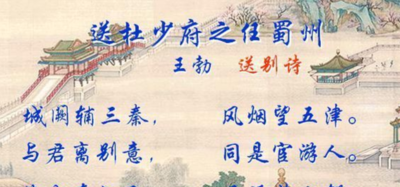 送杜少府之任蜀州
王勃 送别诗
城阙辅三秦， 风烟望五津。
与君离别意， 同是宦游人。